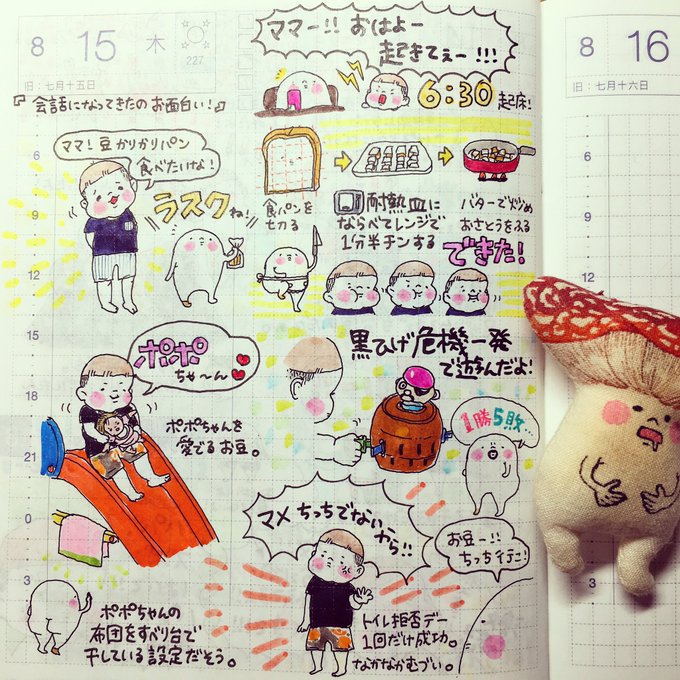 8 15 木
227
旧：七月十五日
『会話になってきたのお面白い！』
ママー!! おはよー
起きてぇー!!!
6:30 起床！
ママ！豆かりかりパン
食べたいけな！
ラスクね！
食パンを
切る
耐熱皿に
ならべてレンジで
1分半チンする
バターで炒め
おさとうをふる
できた！
ポポ
ちゃ〜ん
ポポちゃんを
愛でるお豆。
黒ひげ危機一発
で遊んだよ！
1勝5敗…
マメちっちでない
から!!
お豆ー!!
ちっち行こ！
ポポちゃんの
布団をすべり台で
干している設定だそう。
トイレ拒否デー
1回だけ成功。
なかなかむづい。
6
9
12
15
18
21
0
3
8 16
旧：七月十六日
6
9
12
3